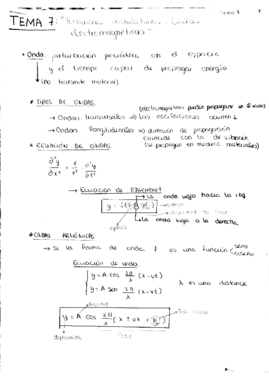 Tema 7
TEMA 7: "Fenómenos ondulatorios. Ondas
electromagnéticas"
• Onda: perturbación periódica en el espacio
y el tiempo capaz de propagar energía
(no transmite materia)
• TIPOS DE ONDAS:
(electromagnéticas pueden propagarse en el vacío)
→ Ondas transversales ⇒ las oscilaciones
→ Ondas longitudinales ⇒ dirección de propagación
coincide con la de vibración
(se propagan en medios materiales)
• ECUACIÓN DE ONDAS
∂²y/∂x² = 1/v² · ∂²y/∂t²
→ Ecuación de D'Alembert
la onda viaja hacia la izq.
la onda viaja a la derecha
• ONDAS ARMÓNICAS
→ Si la forma de onda, f es una función seno
coseno
Ecuación de onda:
y = A cos 2π/λ (x - vt)
y = A sen 2π/λ (x - vt)
λ es una distancia
y = A cos 2π/λ (x ± vt +